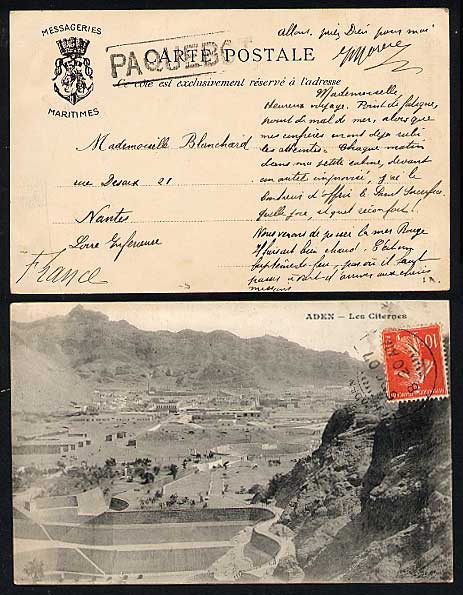 MESSAGERIES
MARITIMES
PAQUEBOT
CARTE POSTALE
Ce côté est exclusivement réservé à l'adresse
Allons, priez Dieu pour moi
Mademoiselle,
Heureux voyage. Point de fatigue,
point de mal de mer, alors que
mes confrères ont déjà subi
les atteintes. Chaque matin
dans ma petite cabine, devant
un autel improvisé, j'ai le
bonheur d'offrir le Saint Sacrifice
Quelle joie, et quel réconfort!
Nous venons de passer la mer Rouge
Il faisait bien chaud.
Mademoiselle Blanchard
rue Desaix 21
Nantes
Loire Inférieure
France
ADEN — Les Citernes
10